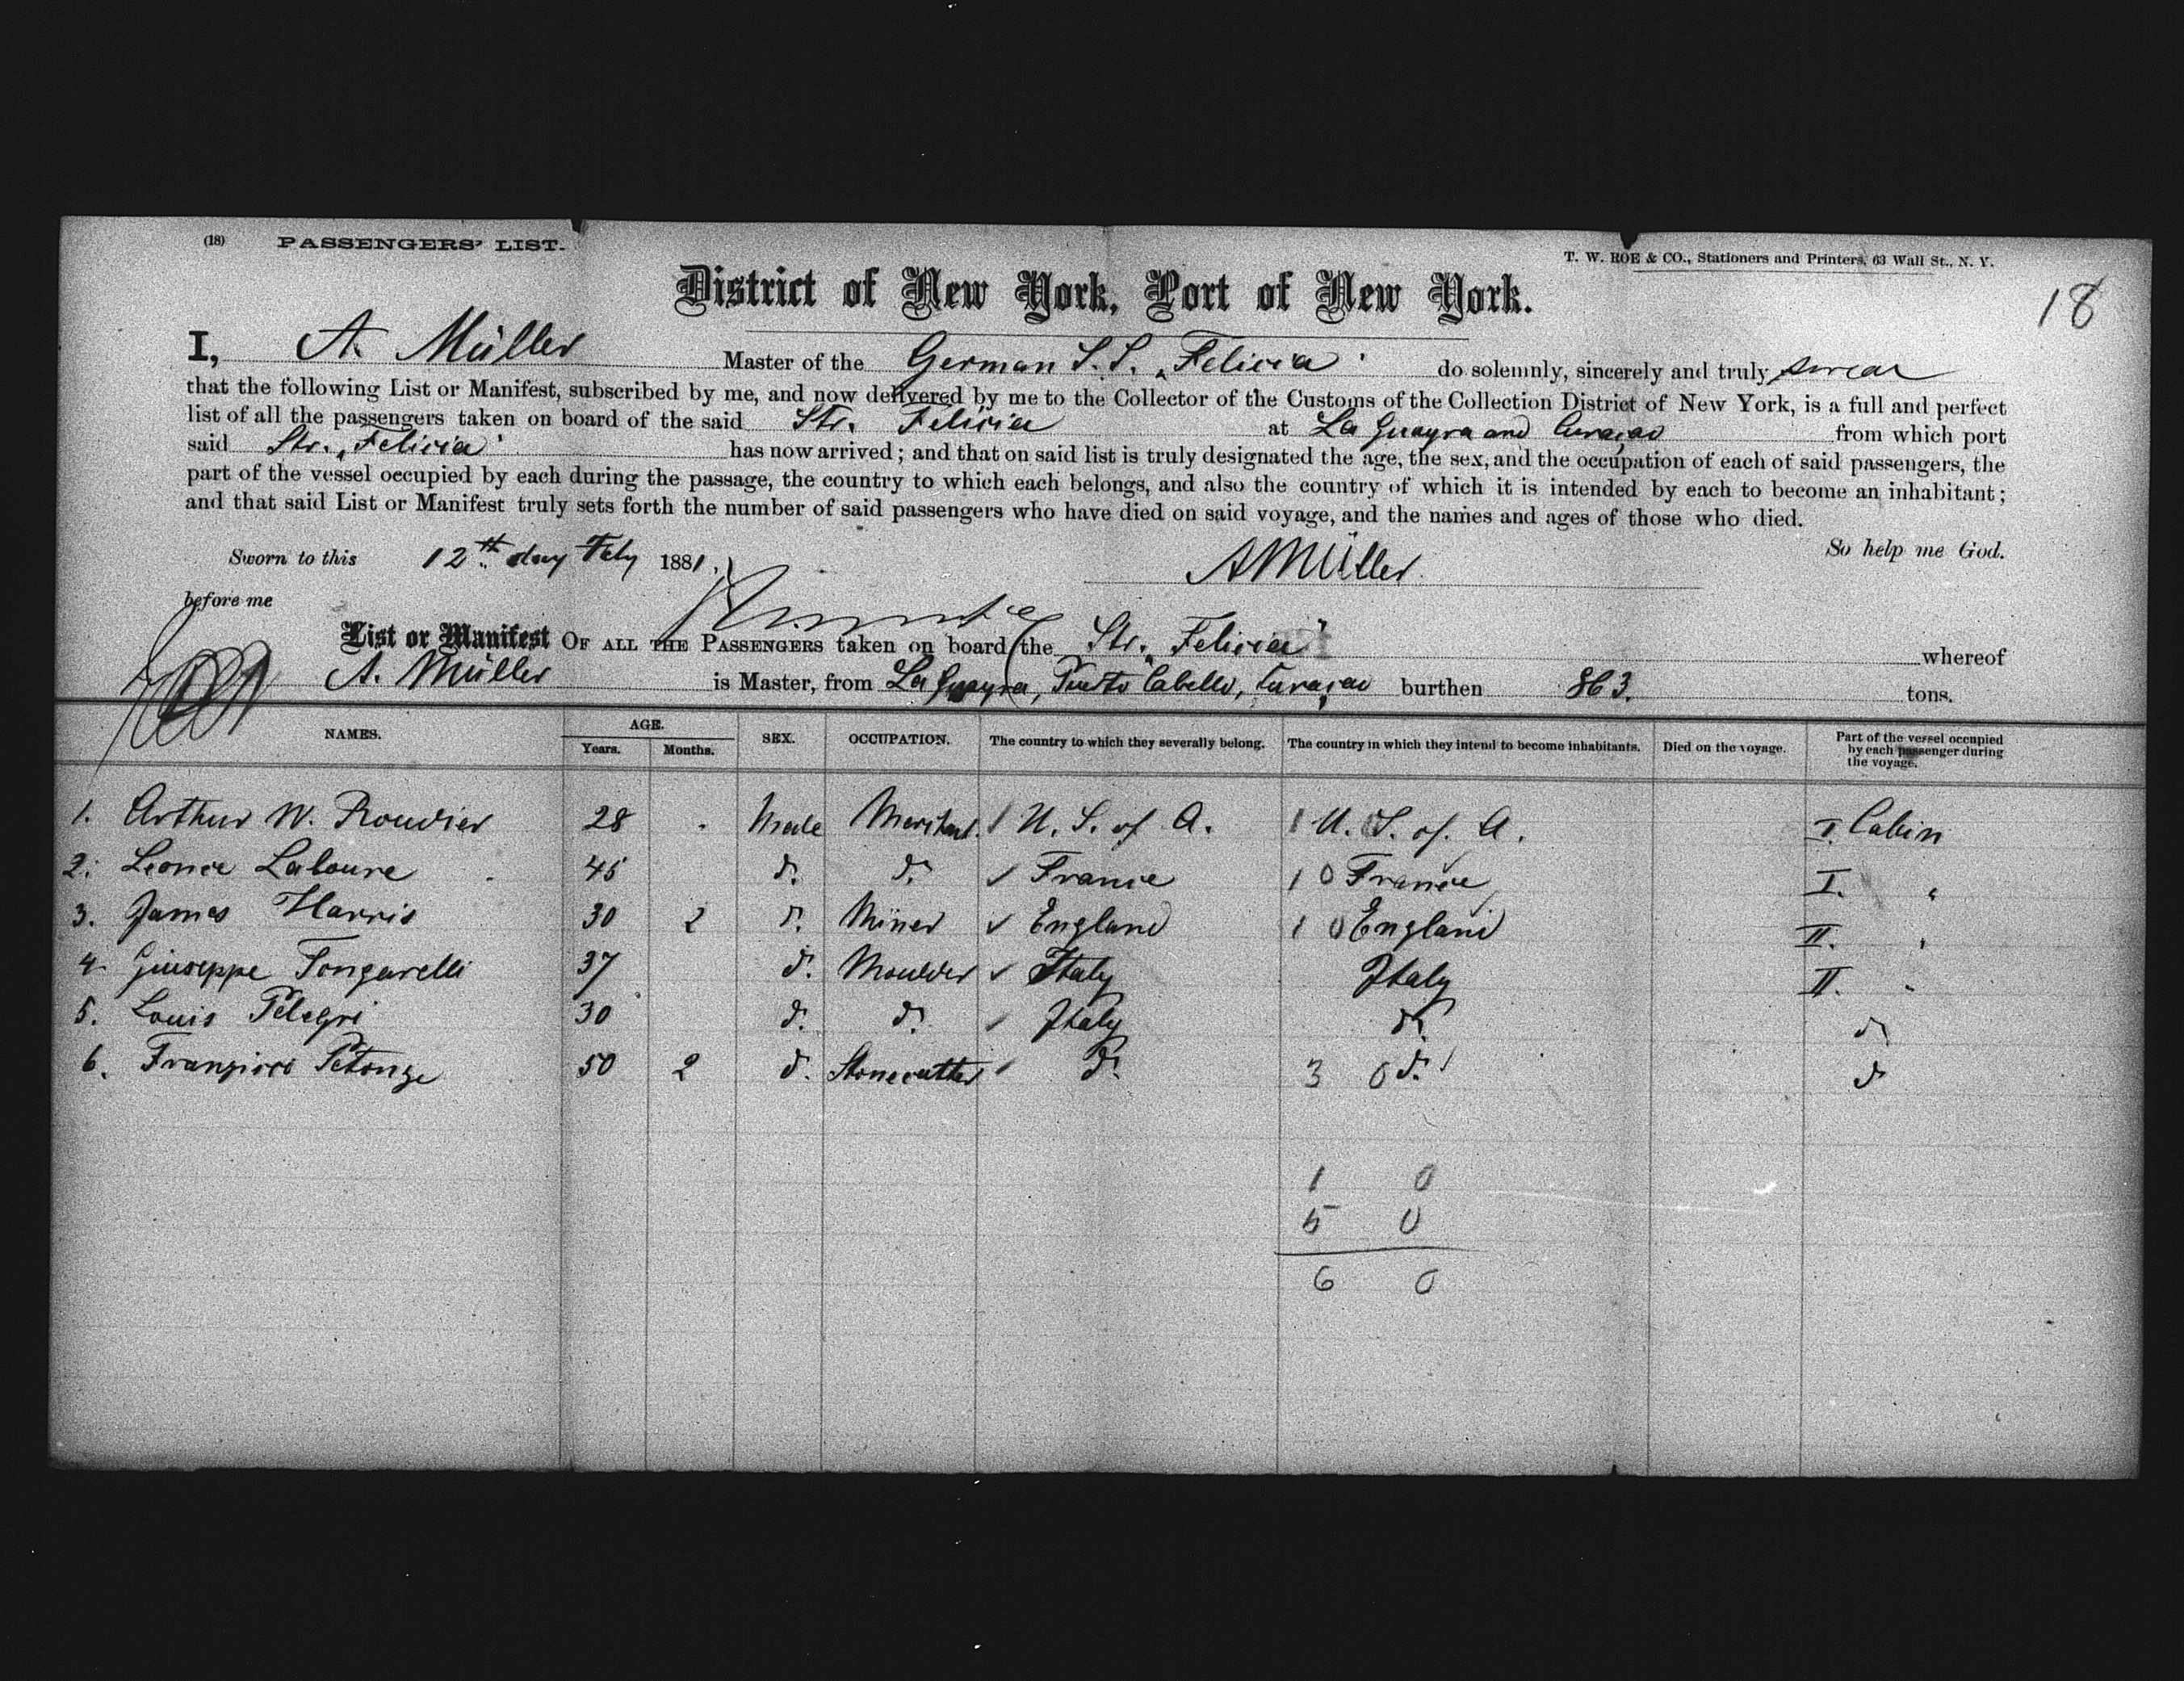 (18) PASSENGERS' LIST.
T. W. ROE & CO., Stationers and Printers, 63 Wall St., N. Y.
18
District of New York, Port of New York.
I, A. Müller Master of the German S. S. "Felicia" do solemnly, sincerely and truly swear
that the following List or Manifest, subscribed by me, and now delivered by me to the Collector of the Customs of the Collection District of New York, is a full and perfect
list of all the passengers taken on board of the said Str. Felicia at La Guayra and Curaçao from which port
said Str. "Felicia" has now arrived; and that on said list is truly designated the age, the sex, and the occupation of each of said passengers, the
part of the vessel occupied by each during the passage, the country to which each belongs, and also the country of which it is intended by each to become an inhabitant;
and that said List or Manifest truly sets forth the number of said passengers who have died on said voyage, and the names and ages of those who died.
So help me God.
Sworn to this 12th day Feby 1881.
A Müller
before me
List or Manifest OF ALL THE PASSENGERS taken on board the Str. "Felicia" whereof
A. Müller is Master, from La Guayra, Puerto Cabello, Curaçao burthen 863. tons.
NAMES. AGE. Years. Months. SEX. OCCUPATION. The country to which they severally belong. The country in which they intend to become inhabitants. Died on the voyage. Part of the vessel occupied by each passenger during the voyage.
1. Arthur W. Roudier 28 Male Merchant 1 U. S. of A. 1 U. S. of. A. I. Cabin
2. Leonce Laboure 45 d. d. ✓ France 1 0 France I. "
3. James Harris 30 2 d. Miner ✓ England 1 0 England II. "
4. Giuseppe Tongarelli 37 d. Moulder ✓ Italy Italy II. "
5. Louis Pelegri 30 d. d. ✓ Italy d. d
6. Petonge 50 2 d. Stonecutter ✓ d. 3 0 d. d
1 0
5 0
6 0